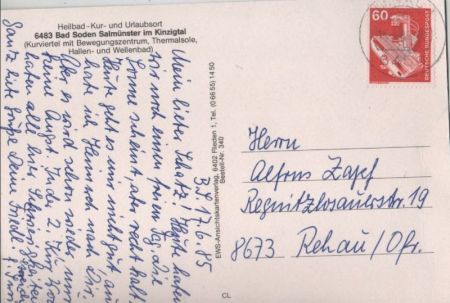 Heilbad -Kur- und Urlaubsort
6483 Bad Soden Salmünster im Kinzigtal
(Kurviertel mit Bewegungszentrum, Thermalsole,
Hallen- und Wellenbad)
60
DEUTSCHE BUNDESPOST
B.S. 17.6.85
Mein lieber Schatz! Heute haben
wir noch einen Tag, die
Sonne scheint aber noch kalt.
Heute geht es mir nicht gut, auch
habe ich Heimweh nach Dir.
Aber es wird schon wieder, nur
keine Angst.
hätte alles kein
Ganz liebe Grüße Deine
EWS-Ansichtskartenverlag, 6402 Flieden 1, Tel. (0 66 55) 14 50
Bestell-Nr. 340
Herrn
Alfons Zapf
Regnitzlosauerstr. 19
8673 Rehau/Ofr.
CL